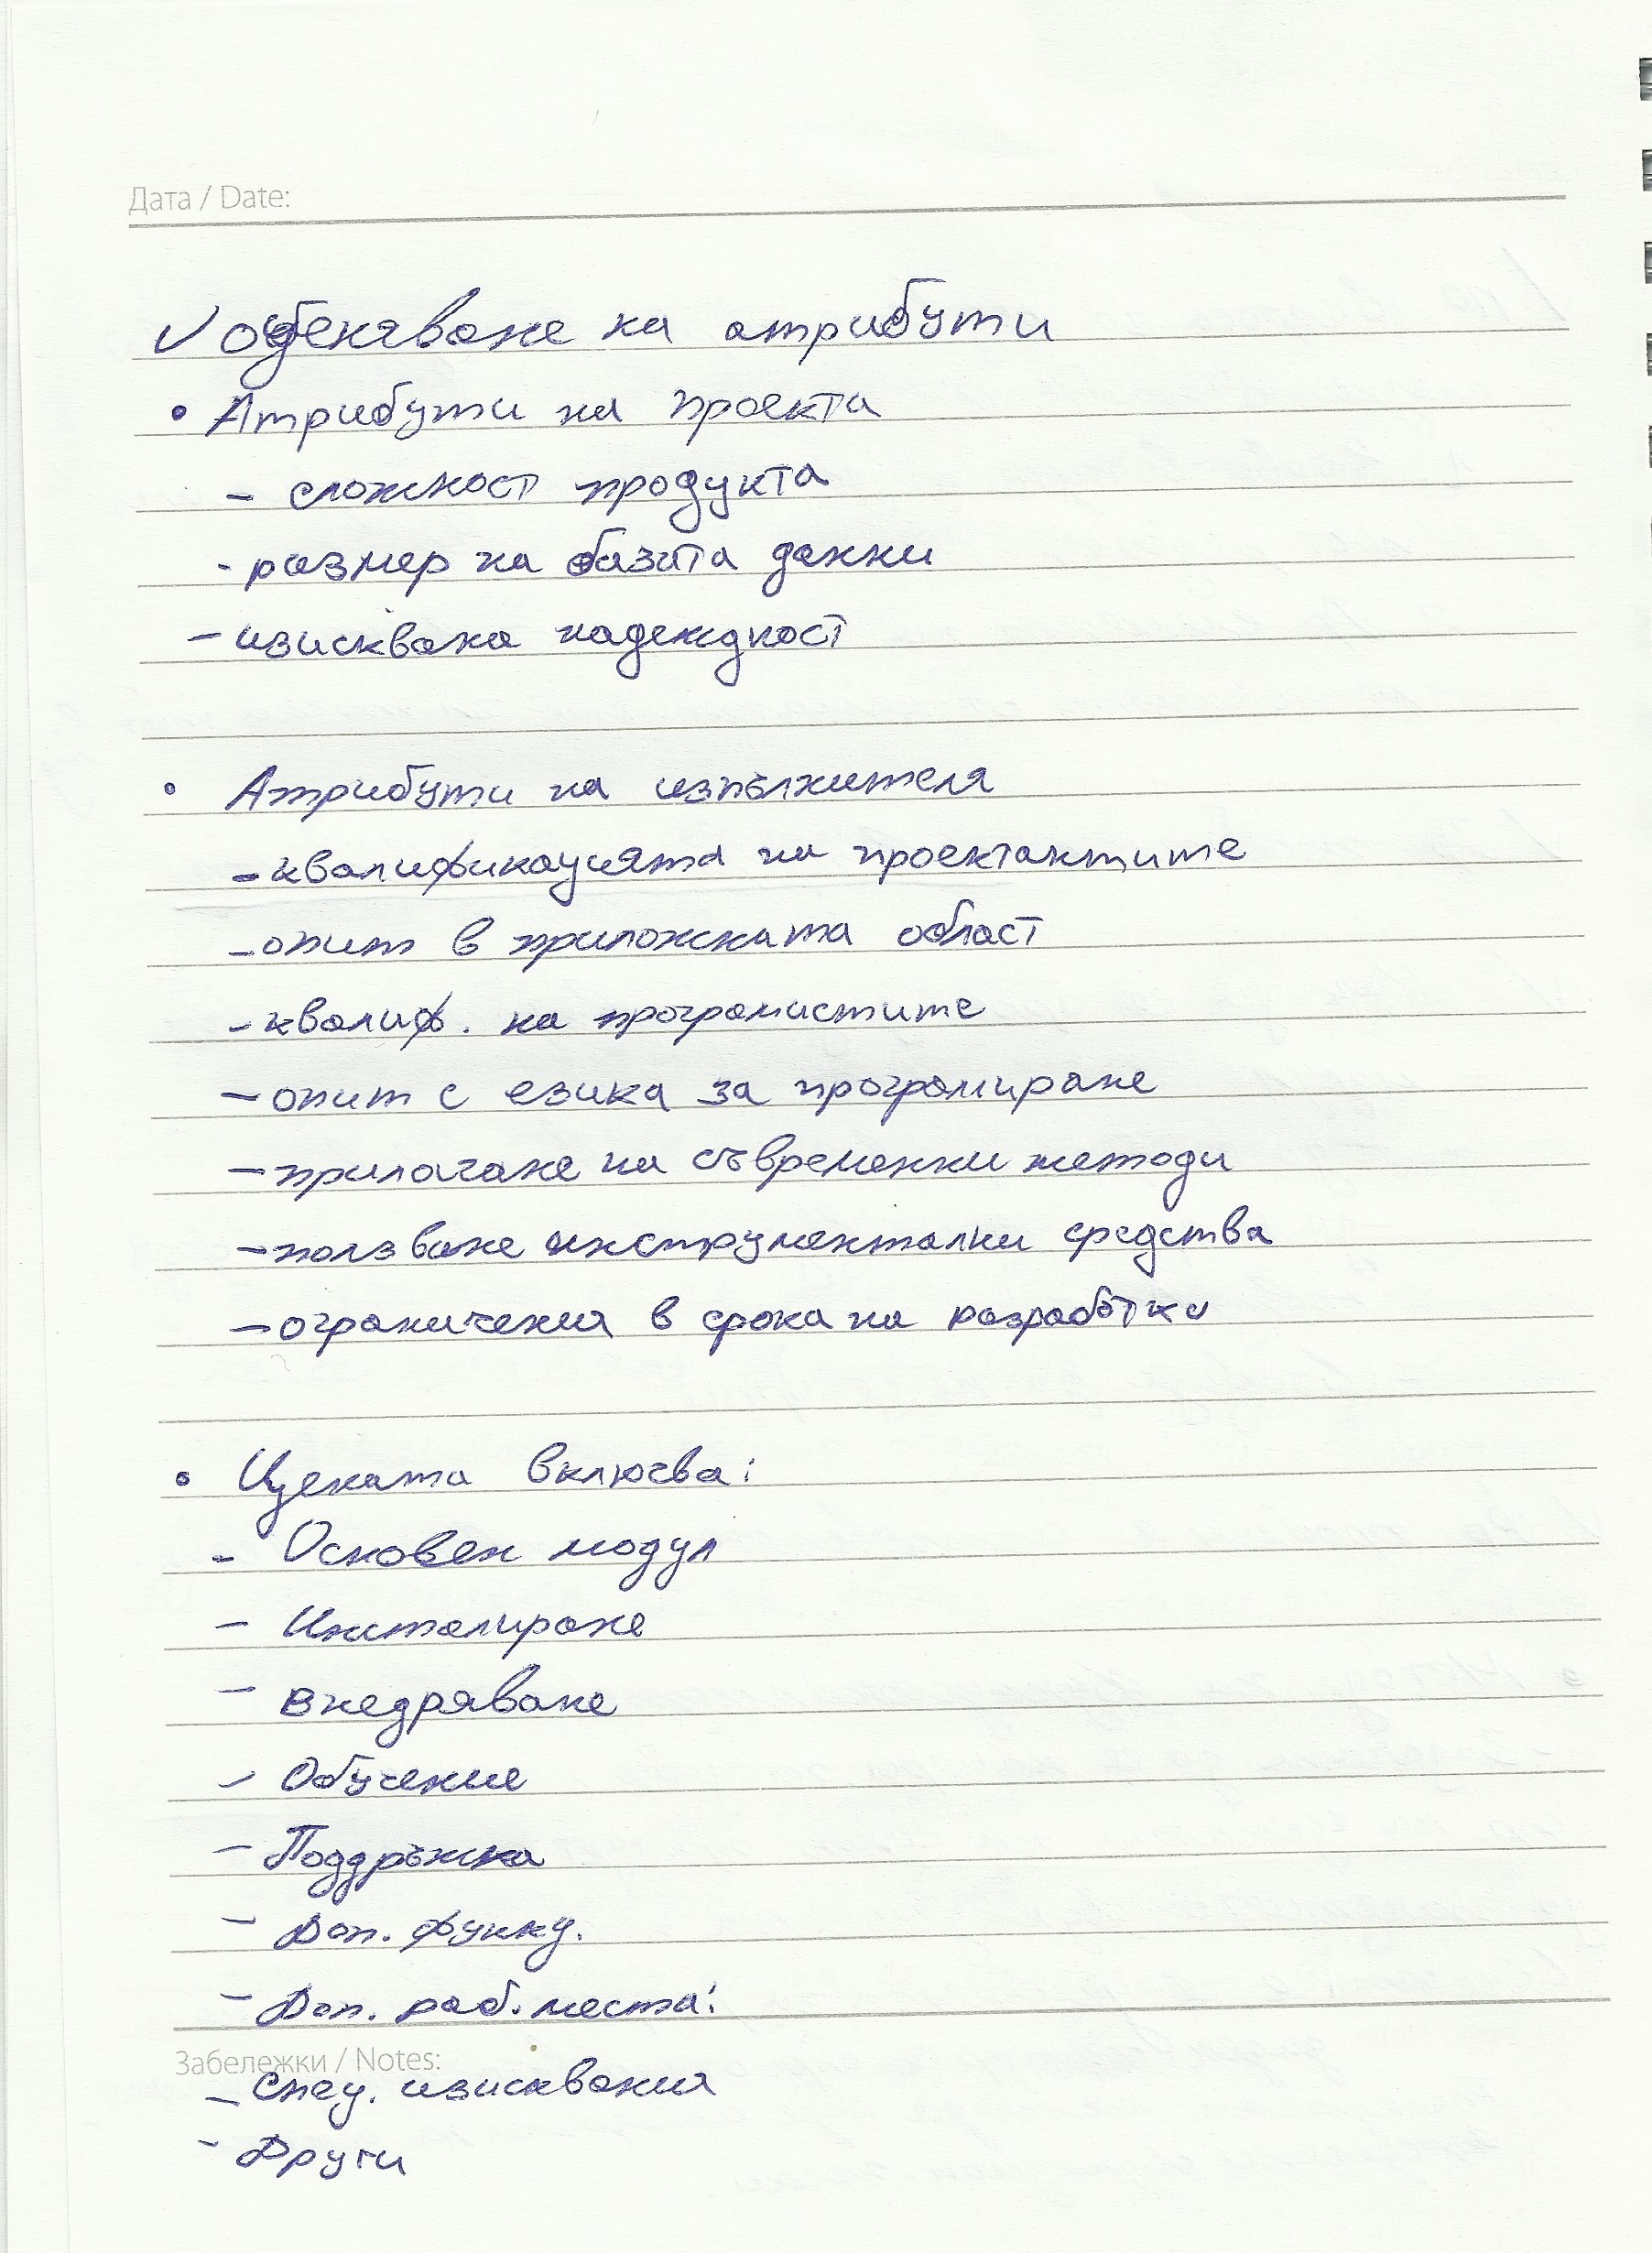 Дата / Date:
✓ оценяване на атрибути
• Атрибути на проекта
- сложност продукта
- размер на базата данни
- изисквана надеждност
• Атрибути на изпълнителя
- квалификацията на проектантите
- опит в приложената област
- квалиф. на програмистите
- опит с езика за програмиране
- прилагане на съвременни методи
- ползване инструментални средства
- ограничения в срока на разработки
• Цената включва:
- Основен модул
- Инсталиране
- Внедряване
- Обучение
- Поддръжка
- Доп. функц.
- Доп. раб. места:
Забележки / Notes:
- Спец. изисквания
- Други